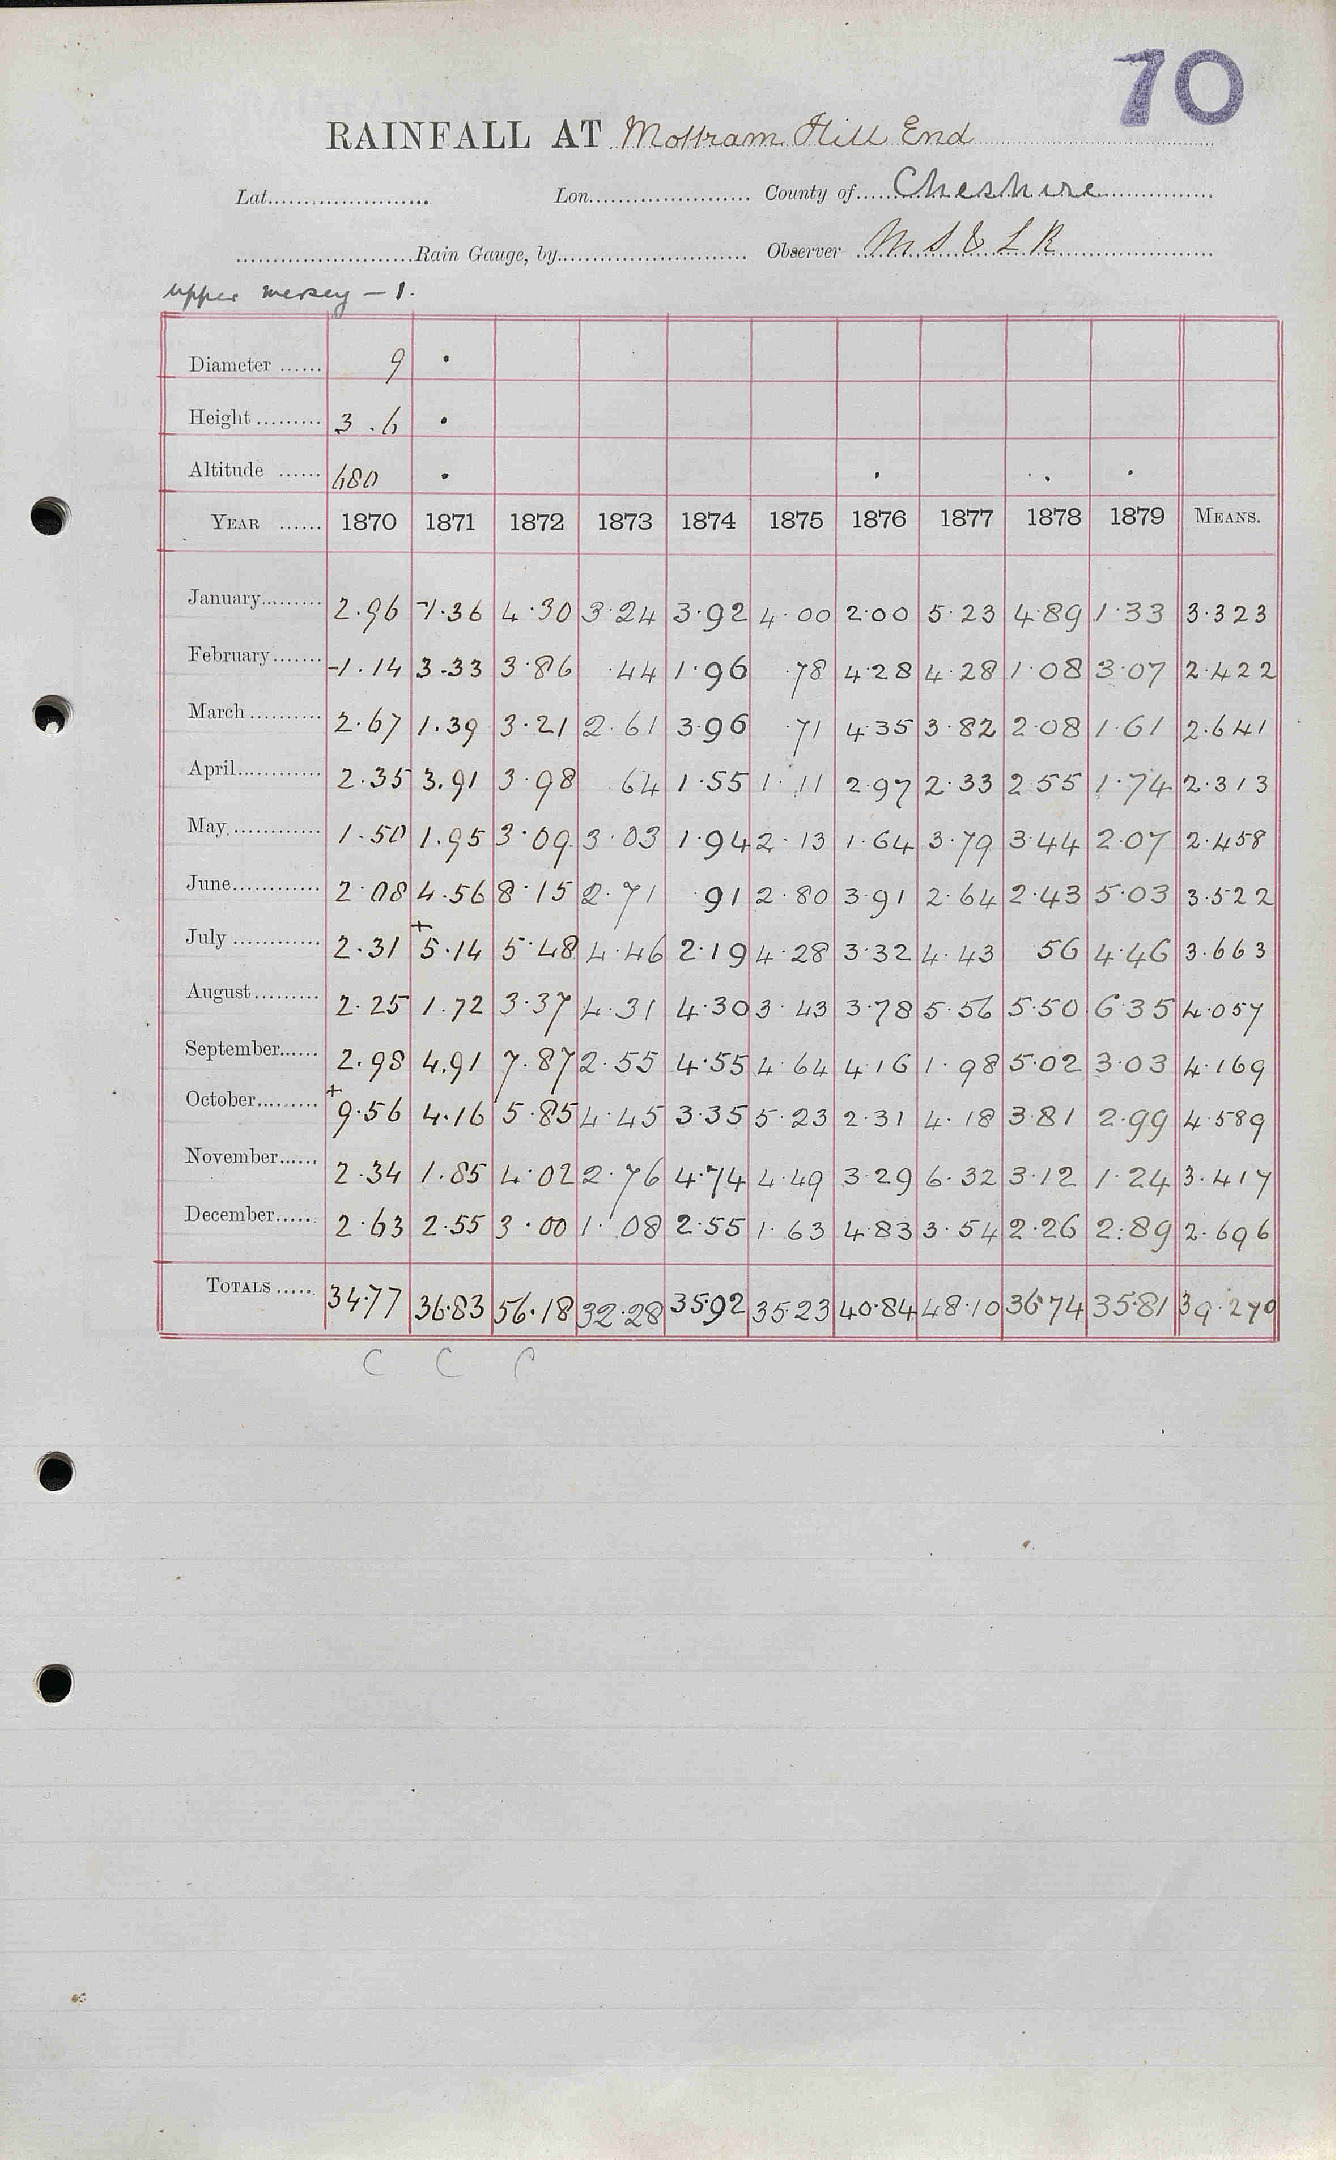 70
RAINFALL AT Mottram Hill End
Lat. Lon. County of Cheshire
Rain Gauge, by Observer M S & L R
Upper Mersey - 1.
Diameter 9 .
Height 3 . 6 .
Altitude 680 . . . .
YEAR 1870 1871 1872 1873 1874 1875 1876 1877 1878 1879 MEANS.
January 2.96 -1.36 4.30 3.24 3.92 4.00 2.00 5.23 4.89 1.33 3.323
February -1.14 3.33 3.86 .44 1.96 .78 4.28 4.28 1.08 3.07 2.422
March 2.67 1.39 3.21 2.61 3.96 .71 4.35 3.82 2.08 1.61 2.641
April 2.35 3.91 3.98 64 1.55 1.11 2.97 2.33 2.55 1.74 2.313
May 1.50 1.95 3.09 3.03 1.94 2.13 1.64 3.79 3.44 2.07 2.458
June 2.08 4.56 8.15 2.71 91 2.80 3.91 2.64 2.43 5.03 3.522
July 2.31 +5.14 5.48 4.46 2.19 4.28 3.32 4.43 56 4.46 3.663
August 2.25 1.72 3.37 4.31 4.30 3.43 3.78 5.56 5.50 6.35 4.057
September 2.98 4.91 7.87 2.55 4.55 4.64 4.16 1.98 5.02 3.03 4.169
October +9.56 4.16 5.85 4.45 3.35 5.23 2.31 4.18 3.81 2.99 4.589
November 2.34 1.85 4.02 2.76 4.74 4.49 3.29 6.32 3.12 1.24 3.417
December 2.63 2.55 3.00 1.08 2.55 1.63 4.83 3.54 2.26 2.89 2.696
TOTALS 34.77 36.83 56.18 32.28 35.92 35.23 40.84 48.10 36.74 35.81 39.270
C C C